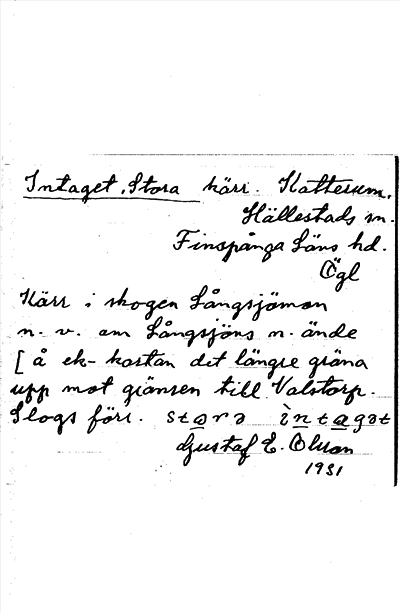 Intaget, Stora kärr. Kattersum.
Hällestads sn.
Finspånga läns hd.
Ögl
Kärr i skogen Långsjömon
n. v. om Långsjöns n. ände
[å ek-kartan det längre gräna
upp mot gränsen till Valstorp.
Slogs förr. stora ìntagət
Gustaf E. Olsson
1931